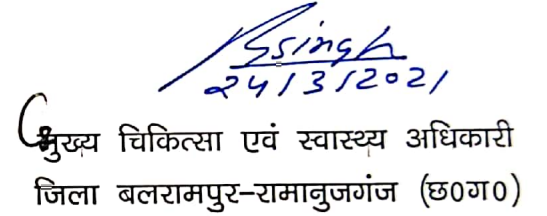 Bssingh
24/3/2021
मुख्य चिकित्सा एवं स्वास्थ्य अधिकारी
जिला बलरामपुर-रामानुजगंज (छ0ग0)